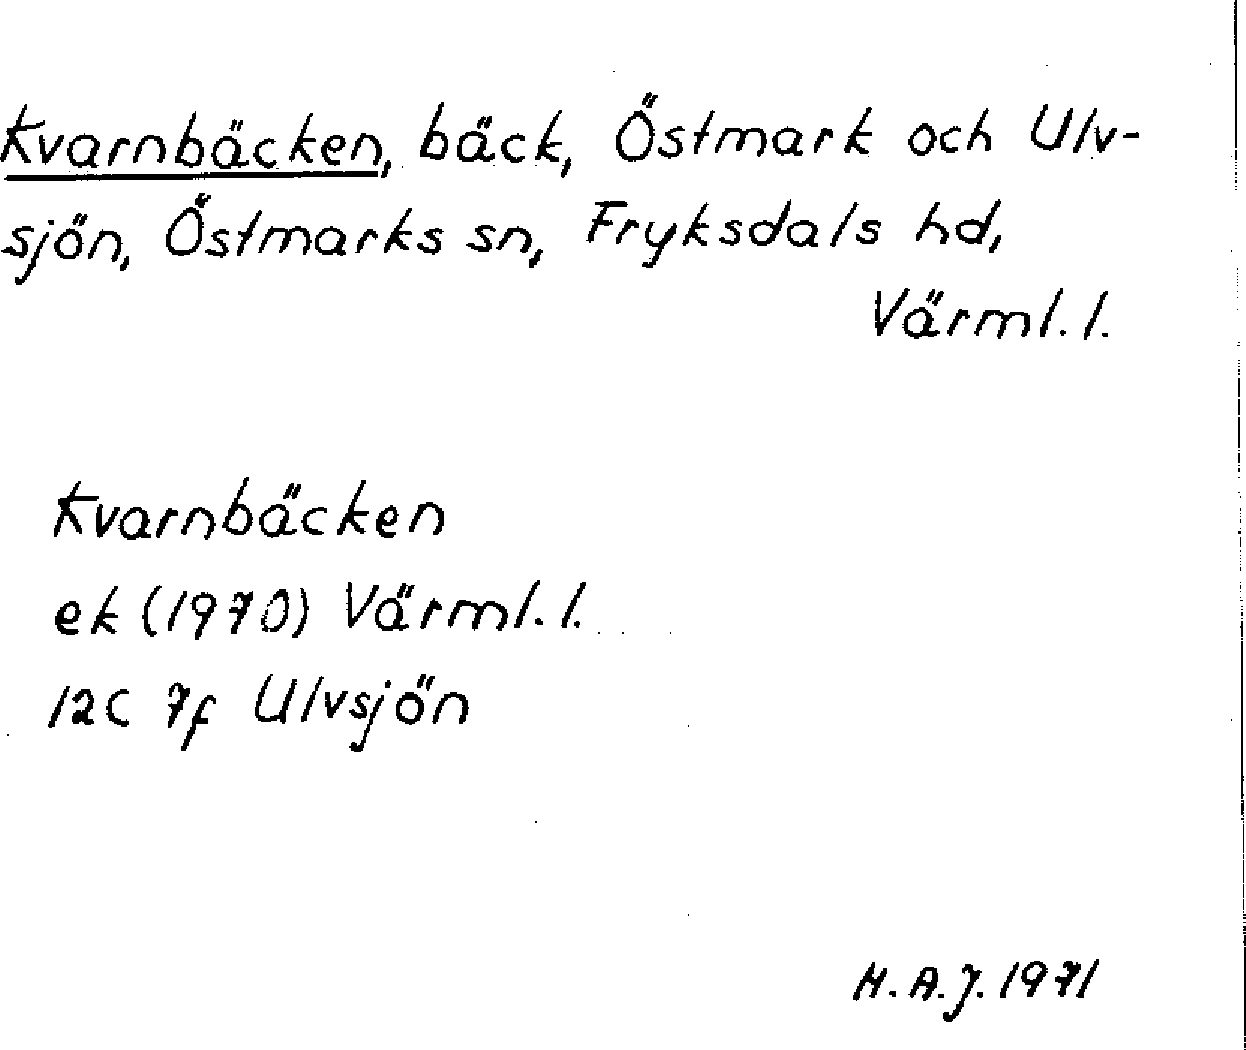 Kvarnbäcken, bäck, Östmark och Ulv-
sjön, Östmarks sn, Fryksdals hd,
Värml. l.
Kvarnbäcken
ek (1970) Värml. l.
12C 7f Ulvsjön
H. A. J. 1971